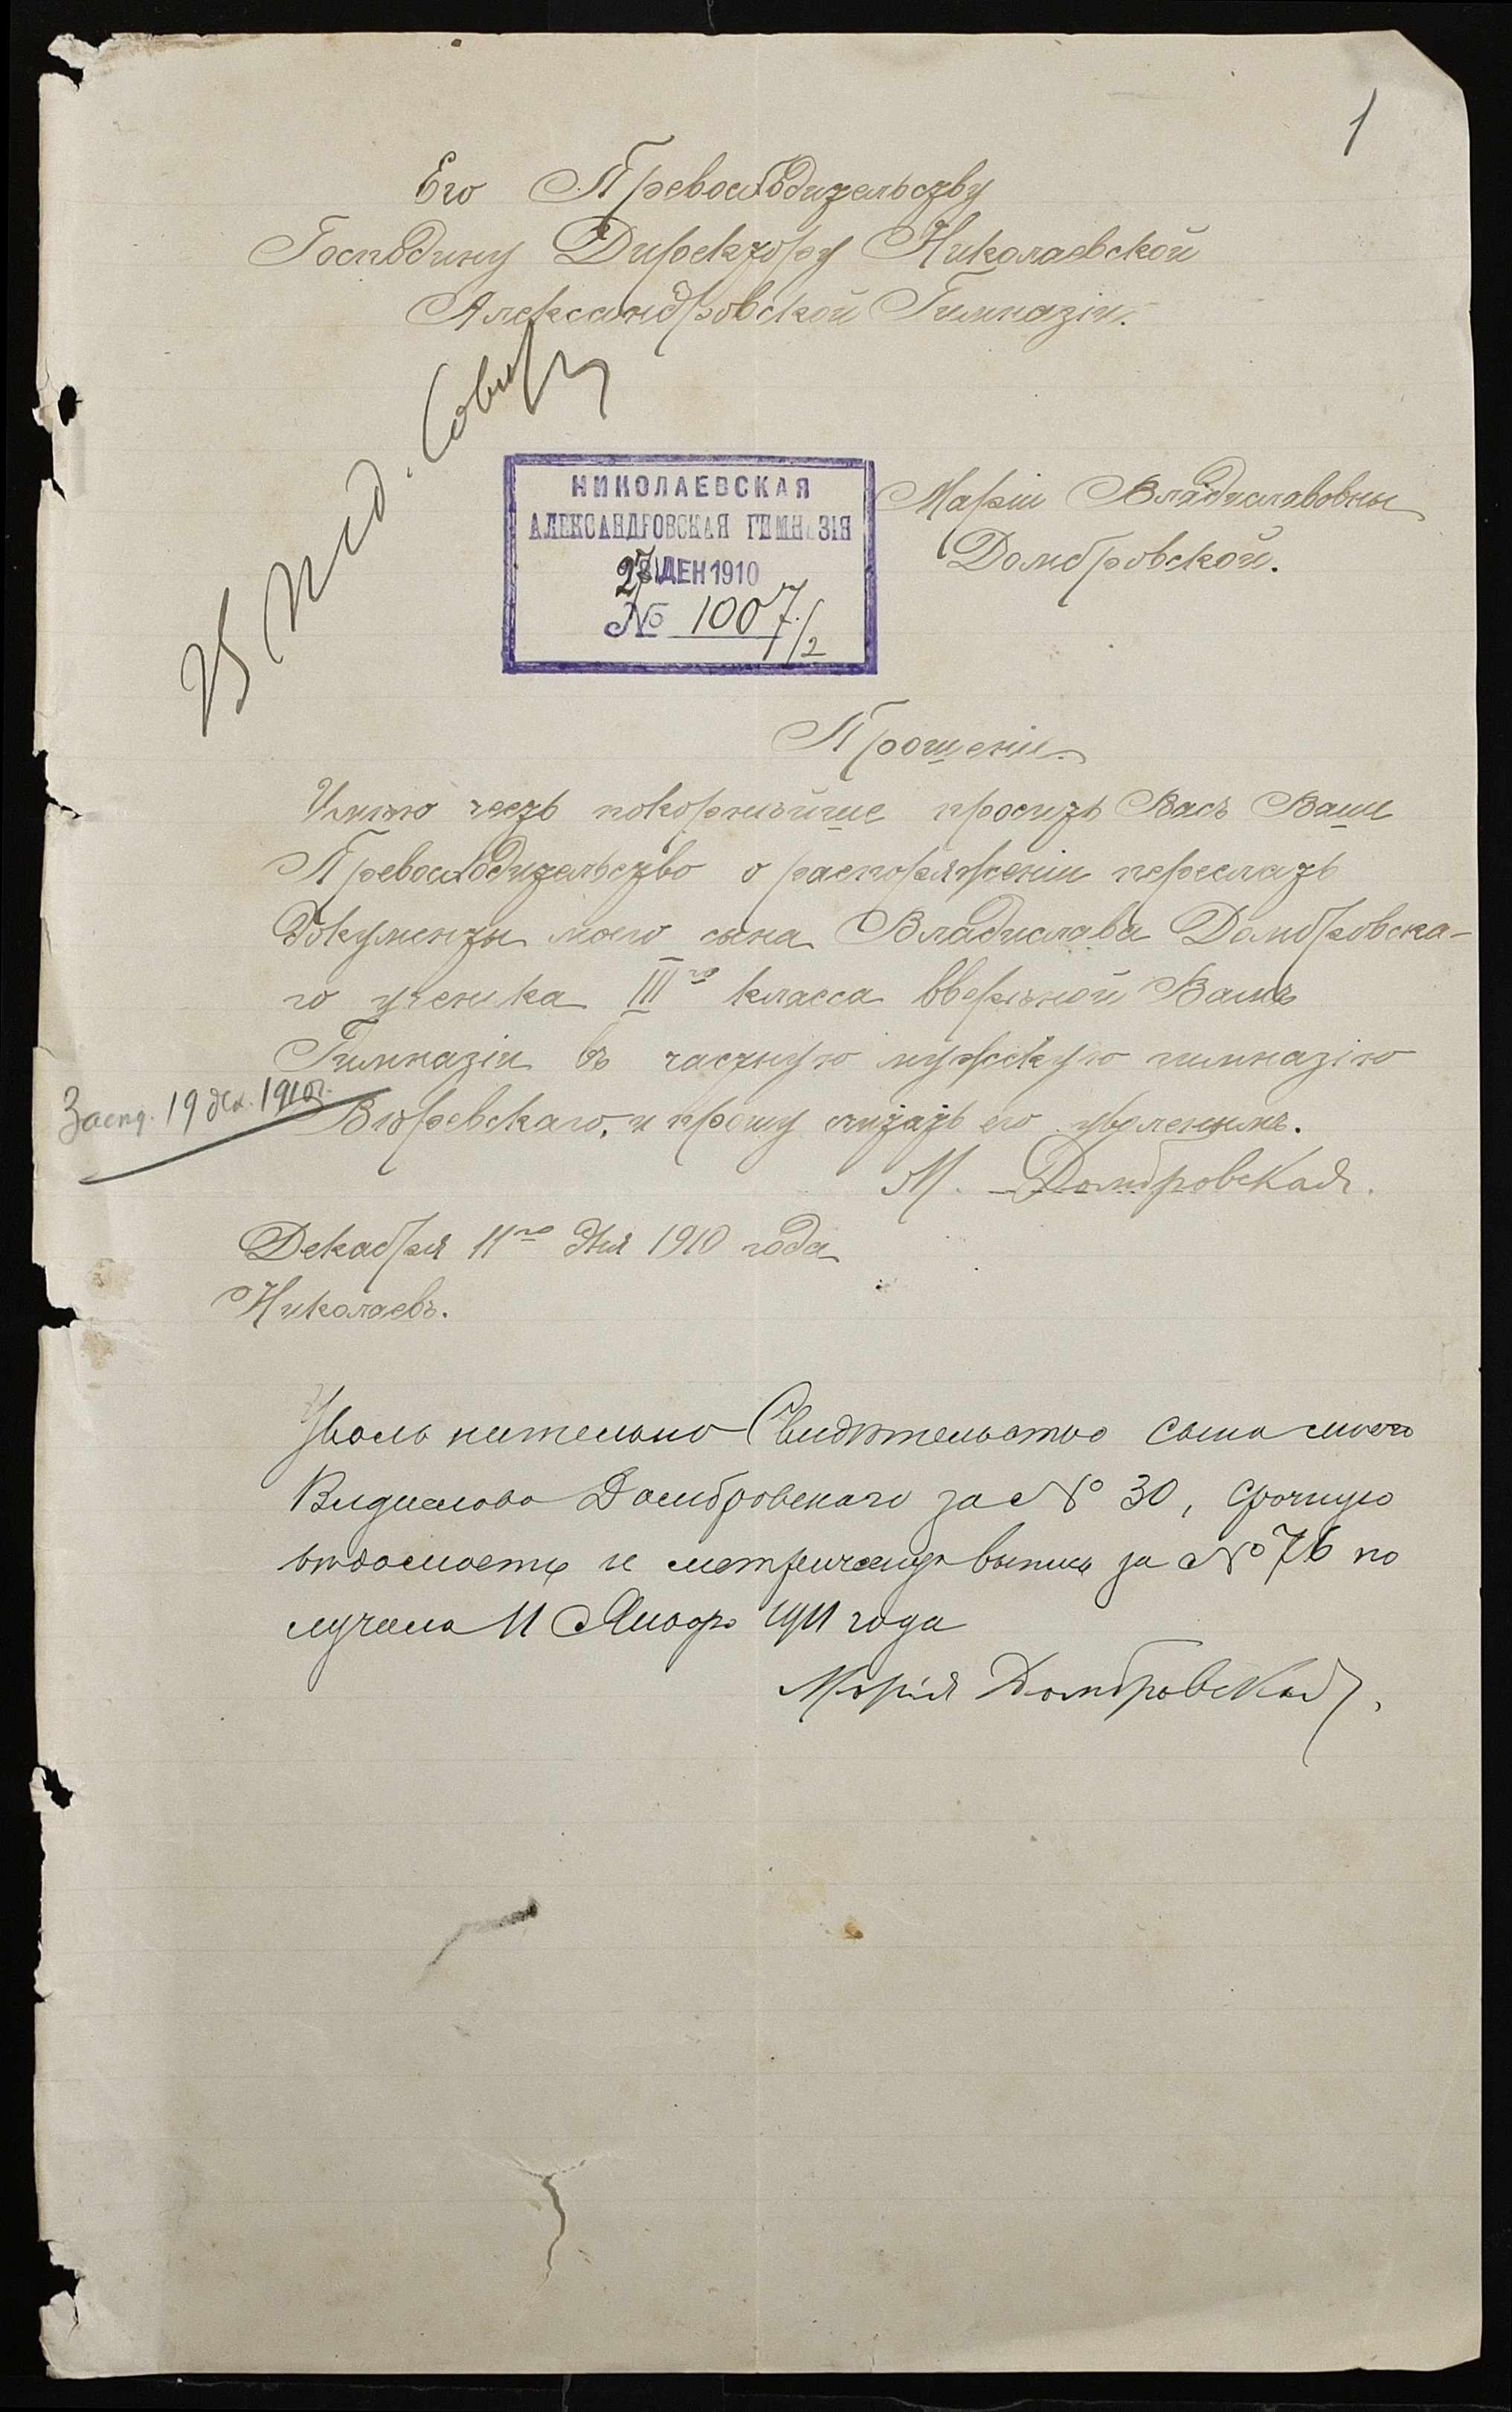 1
Его Превосходительству
Господину Директору Николаевской
Александровской Гимназіи.
Въ Пед. Совѣтъ
НИКОЛАЕВСКАЯ
АЛЕКСАНДРОВСКАЯ ГИМНАЗІЯ
27 ДЕК 1910
№ 1007/2
Маріи Владиславовны
Домбровской.
Прошеніе
Имѣю честь покорнѣйше просить Васъ Ваше
Превосходительство о распоряженіи переслать
документы моего сына Владислава Домбровска-
го ученика III го класса ввѣреной Вамъ
Гимназіи въ частную мужскую гимназію
и прошу считать его уволеннымъ.
Засѣд. 19 дек. 1910 г.
М. Домбровская.
Декабря 11го дня 1910 года
Николаевъ.
Увольнительно Свидѣтельство сына моего
Владислава Домбровскаго за № 30, срочную
вѣдомость и метрическую выпись за № 76 по
лучила 11 Января 1911 года
Марія Домбровская.